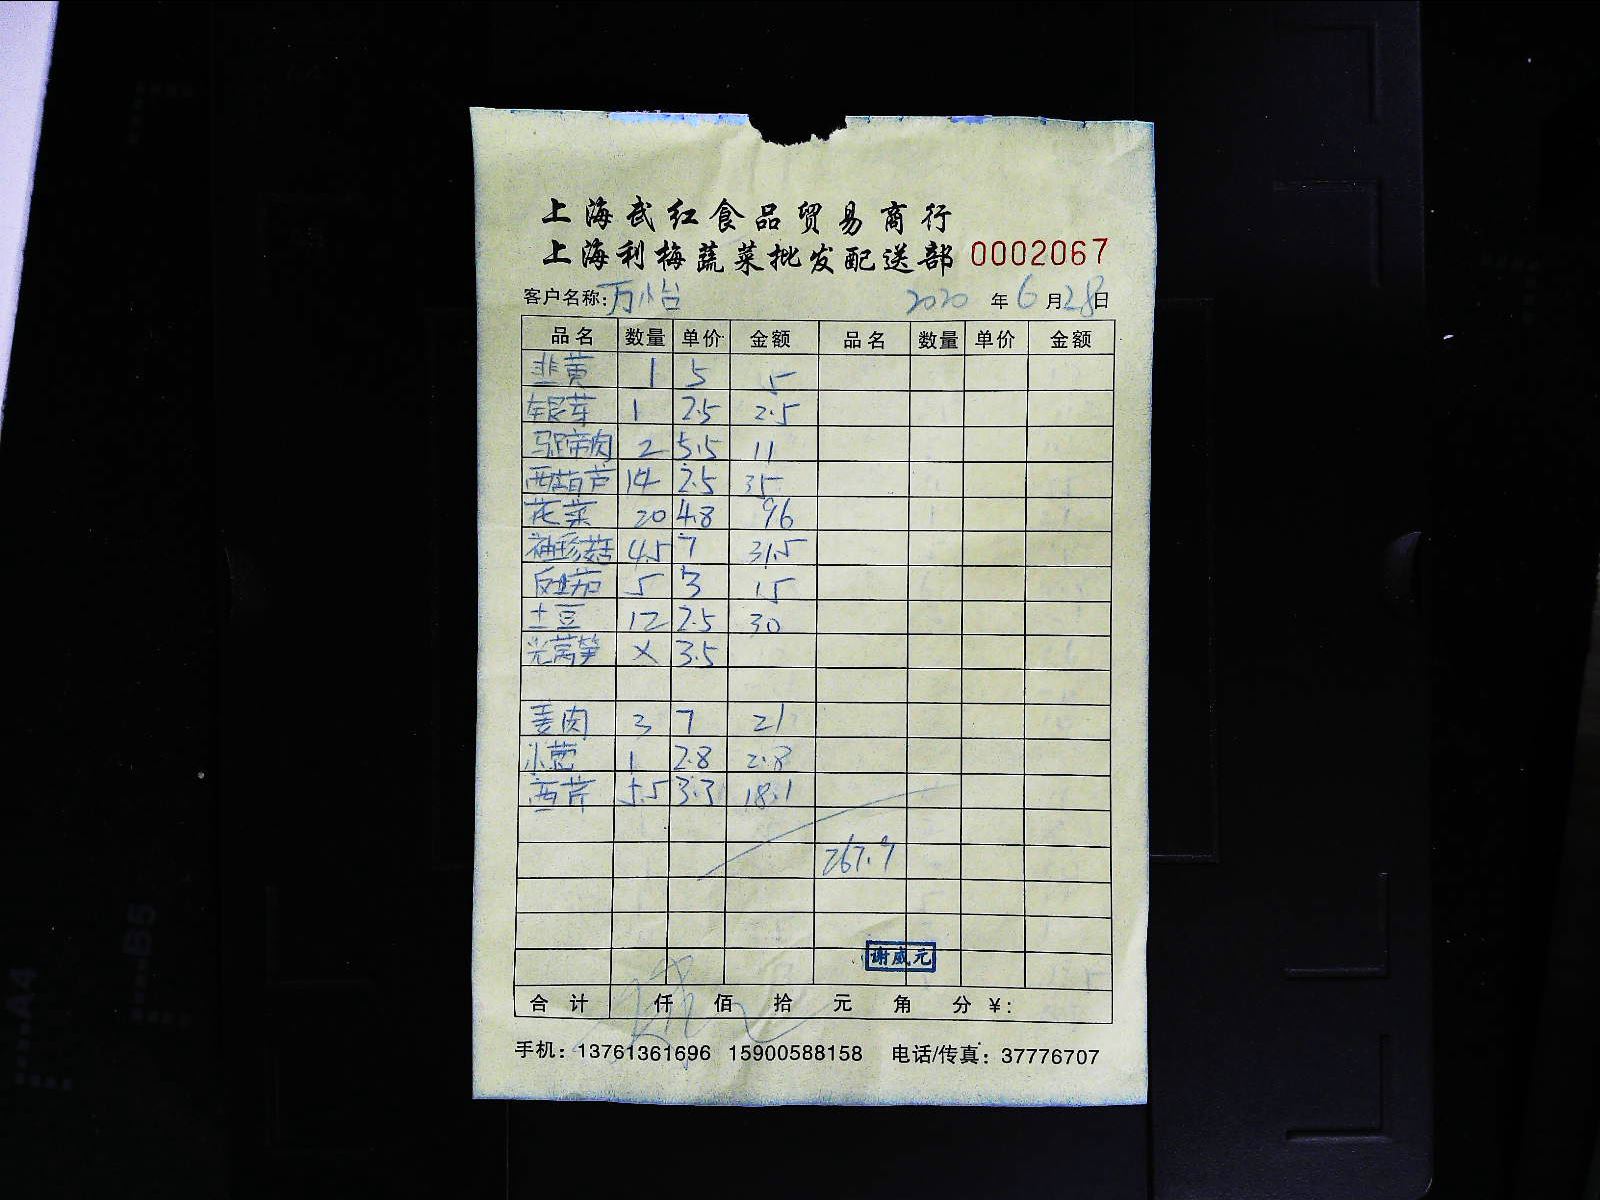 上海武红食品贸易商行
上海利梅蔬菜批发配送部 0002067
客户名称：万小台 2020 年 6 月 28 日
品名 数量 单价 金额 品名 数量 单价 金额
韭黄 1 5 5
银芽 1 2.5 2.5
马蹄肉 2 5.5 11
西葫芦 14 2.5 35
花菜 20 4.8 96
袖珍菇 4.5 7 31.5
茄 5 3 15
土豆 12 2.5 30
光莴笋 X 3.5
姜肉 3 7 21
小葱 1 2.8 2.8
西芹 5.5 3.3 18.1
267.9
谢威元
合计 仟 佰 拾 元 角 分 ￥：
手机：13761361696 15900588158 电话/传真：37776707
A4
B5